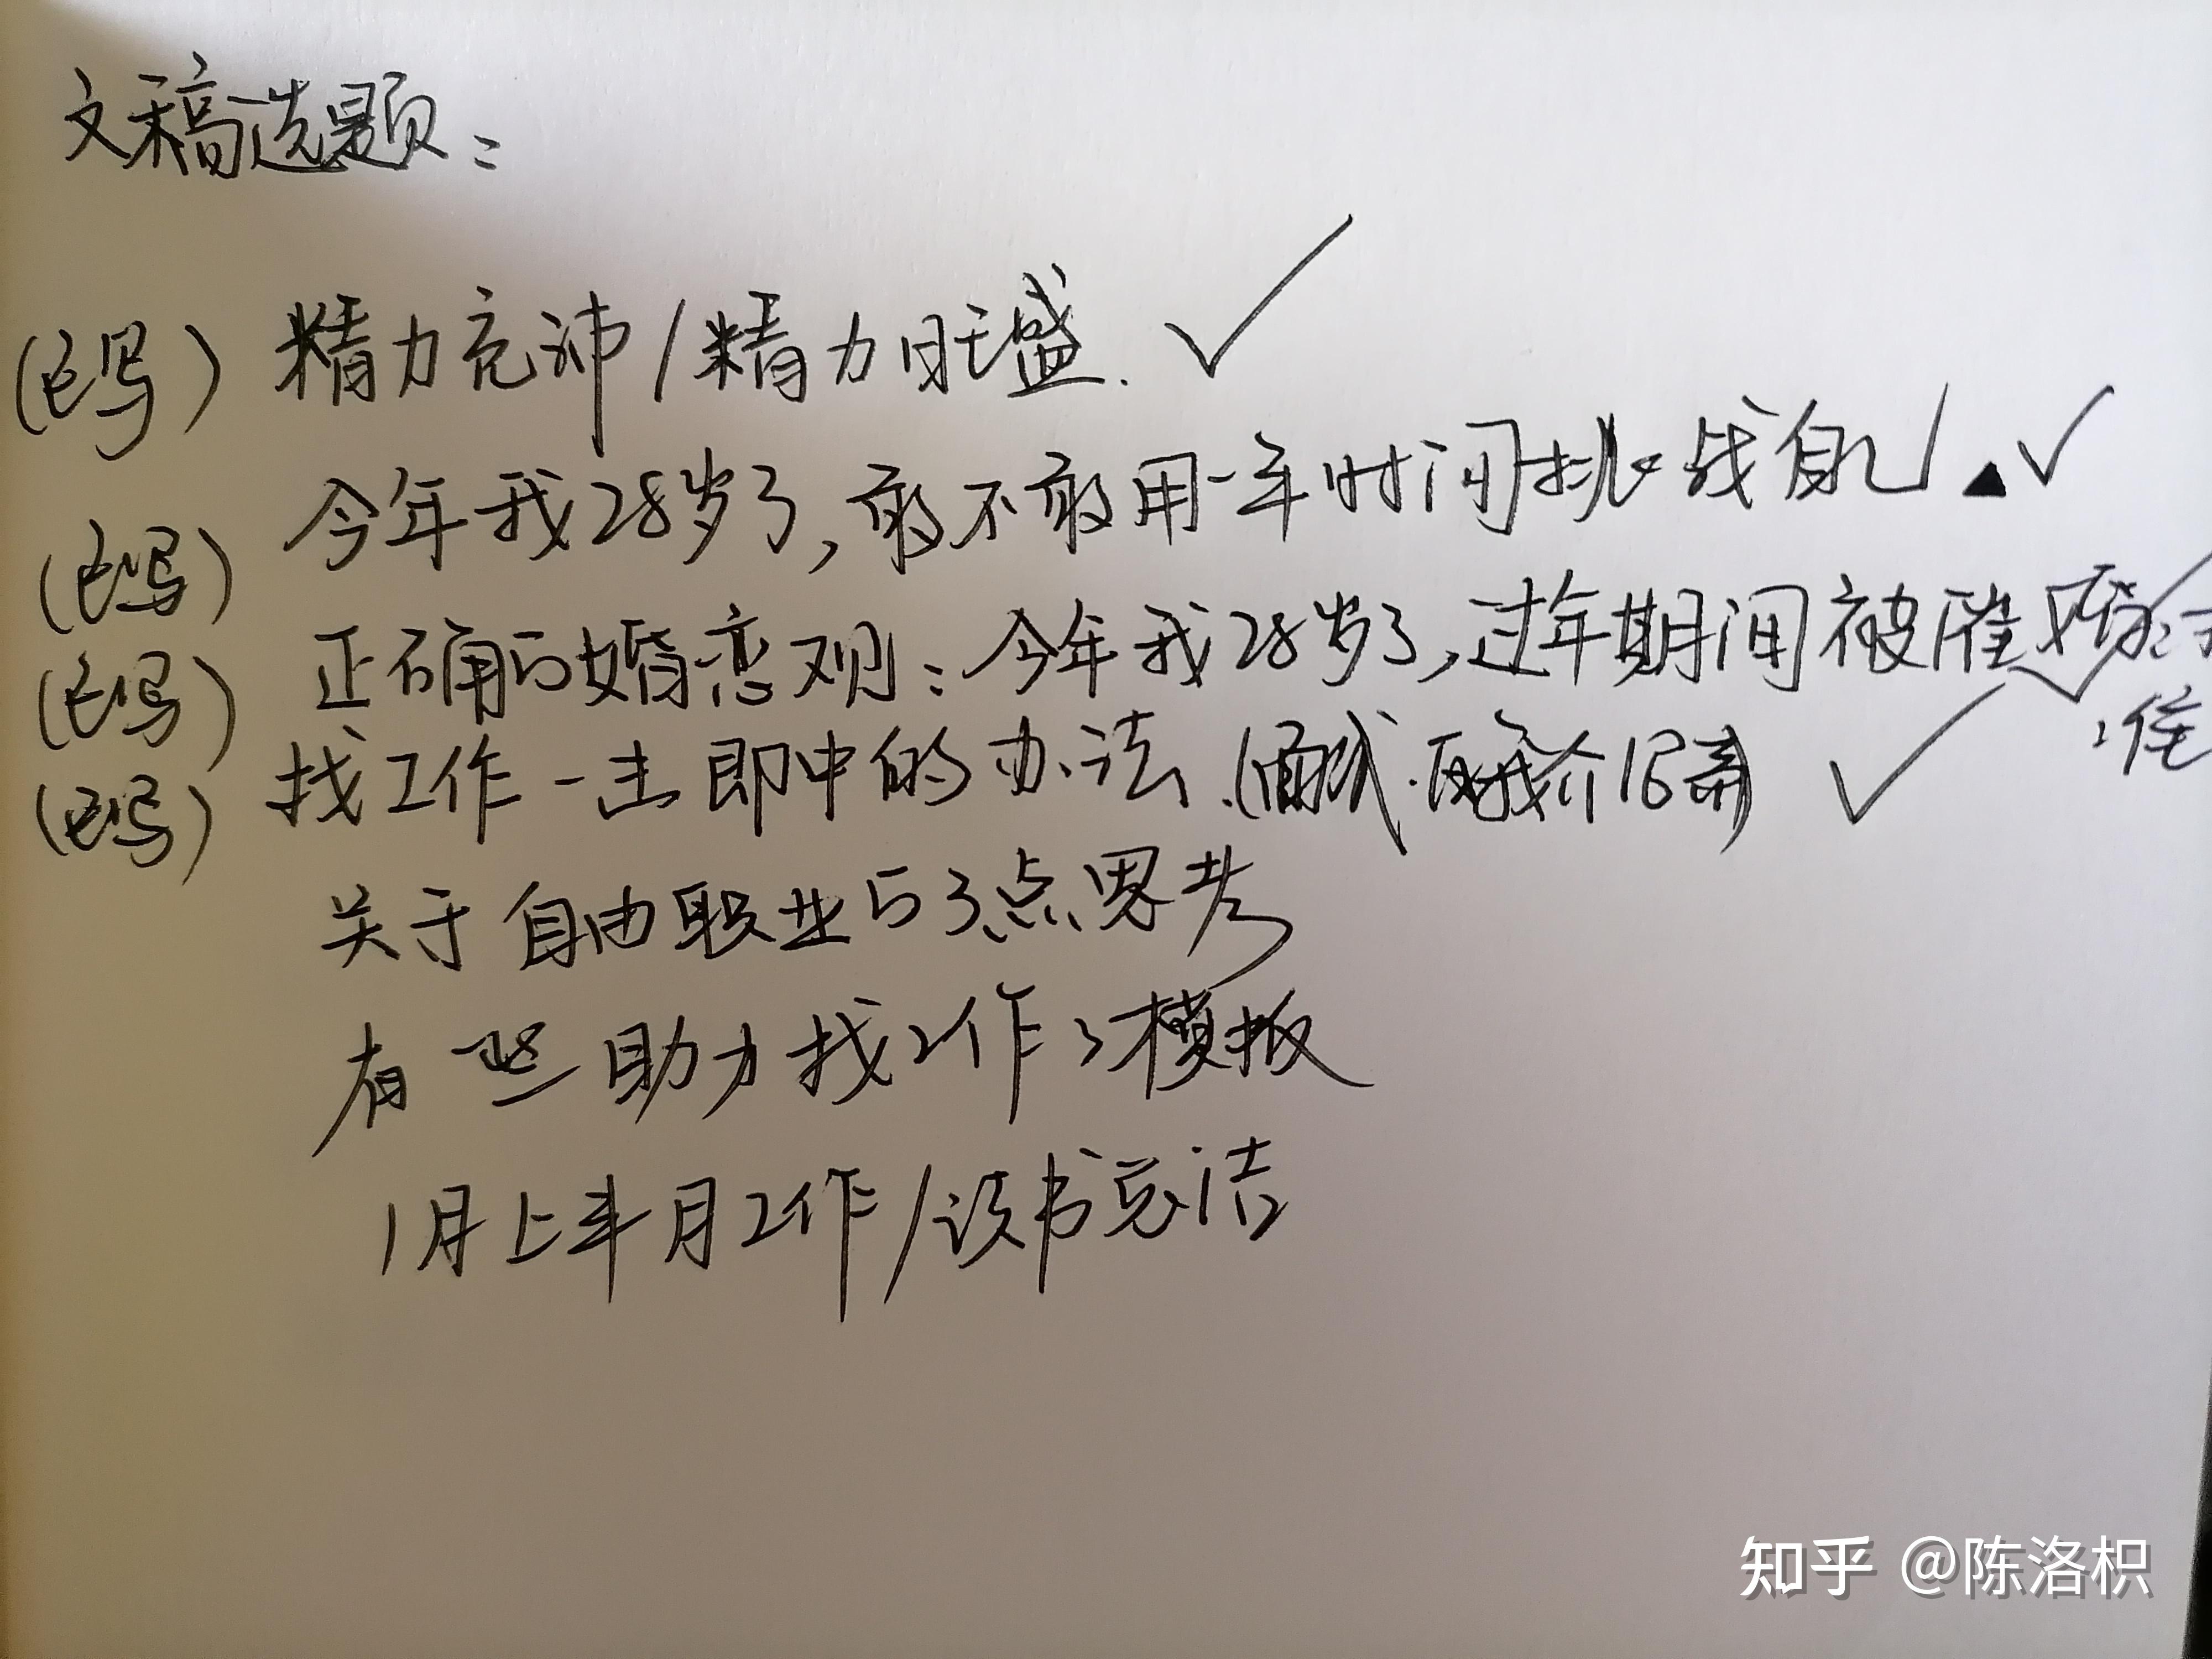 文稿选题：
(已写) 精力充沛/精力旺盛. ✓
(已写) 今年我28岁了,敢不敢用一年时间挑战自己▲✓
(已写) 正确的婚恋观：今年我28岁了,过年期间被催婚
(已写) 找工作一击即中的办法. ✓
关于自由职业的3点思考
有些助力找工作的模板
1月上半月工作/读书总结
知乎 @陈洛枳